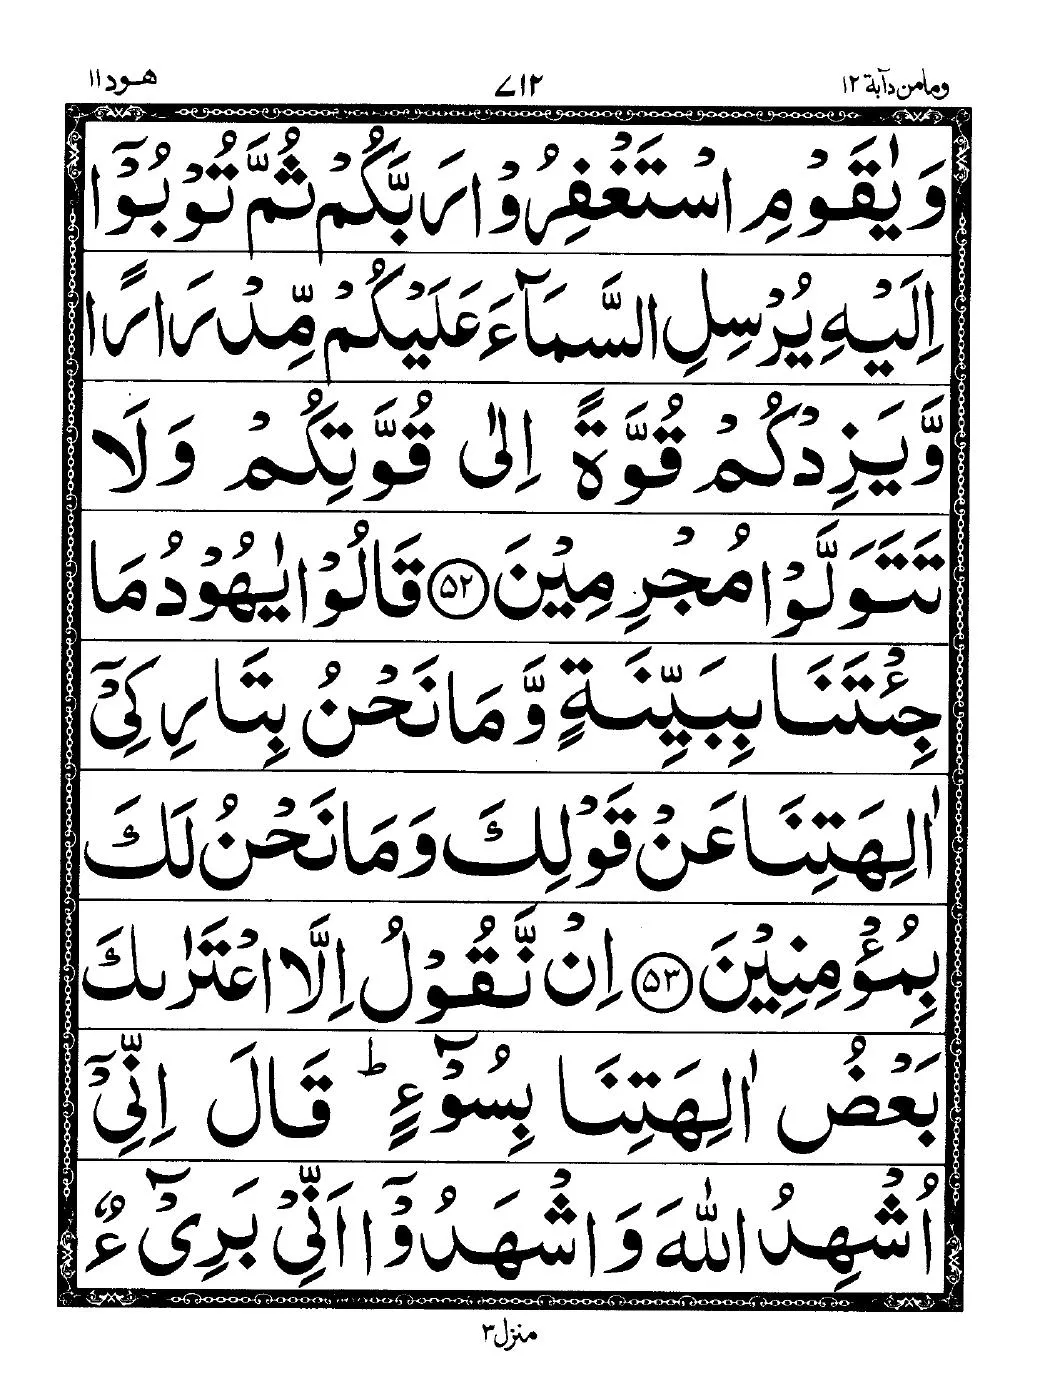 ومامن دآبة ۱۲
۷۱۲
هود ۱۱
وَ يٰقَوْمِ اسْتَغْفِرُوْا رَبَّكُمْ ثُمَّ تُوْبُوْۤا
اِلَيْهِ يُرْسِلِ السَّمَآءَ عَلَيْكُمْ مِّدْرَارًا
وَّيَزِدْكُمْ قُوَّةً اِلٰى قُوَّتِكُمْ وَلَا
تَتَوَلَّوْا مُجْرِمِيْنَ ۵۲ قَالُوْا يٰهُوْدُ مَا
جِئْتَنَا بِبَيِّنَةٍ وَّمَا نَحْنُ بِتَارِكِيْۤ
اٰلِهَتِنَا عَنْ قَوْلِكَ وَمَا نَحْنُ لَكَ
بِمُؤْمِنِيْنَ ۵۳ اِنْ نَّقُوْلُ اِلَّا اعْتَرٰىكَ
بَعْضُ اٰلِهَتِنَا بِسُوْٓءٍ ؕ قَالَ اِنِّيْۤ
اُشْهِدُ اللّٰهَ وَاشْهَدُوْۤا اَنِّيْ بَرِيْٓءٌ
منزل ۳